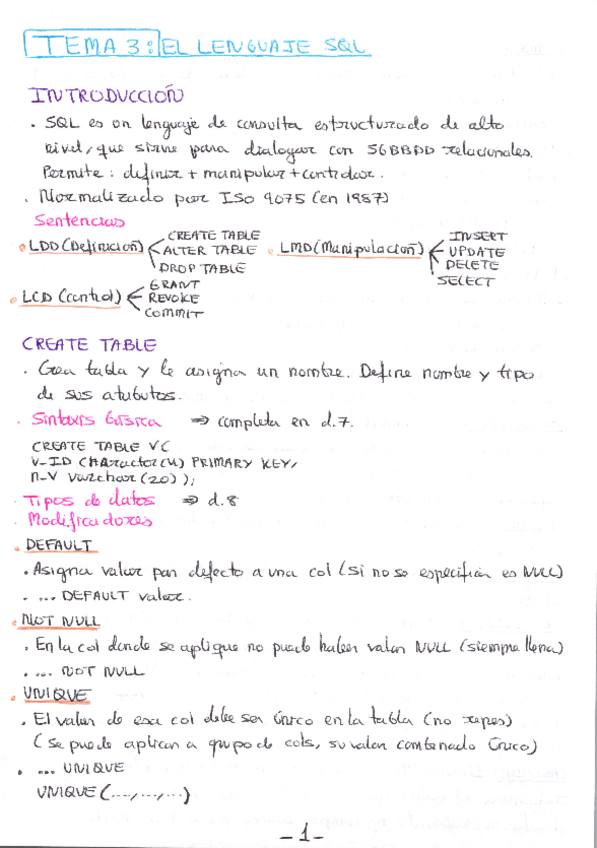 TEMA 3: EL LENGUAJE SQL
INTRODUCCIÓN
. SQL es un lenguaje de consulta estructurado de alto
nivel, que sirve para dialogar con SGBBDD relacionales.
Permite: definir + manipular + controlar.
. Normalizado por ISO 9075 (en 1987)
Sentencias
LDD (Definición) CREATE TABLE ALTER TABLE DROP TABLE
LMD (Manipulación) INSERT UPDATE DELETE SELECT
LCD (control) GRANT REVOKE COMMIT
CREATE TABLE
. Crea tabla y le asigna un nombre. Define nombre y tipo
de sus atributos.
. Sintaxis básica ⇒ completa en d.7.
CREATE TABLE VC
V-ID Character(4) PRIMARY KEY,
n-V varchar(20));
. Tipos de datos ⇒ d.8
. Modificadores
DEFAULT
. Asigna valor por defecto a una col (si no se especifica es NULL)
. ... DEFAULT valor.
NOT NULL
. En la col donde se aplique no puede haber valor NULL (siempre llena)
. ... NOT NULL
UNIQUE
. El valor de esa col debe ser único en la tabla (no repes)
(se puede aplicar a grupo de cols, su valor combinado único)
. ... UNIQUE
UNIQUE (...,...,...)
-1-